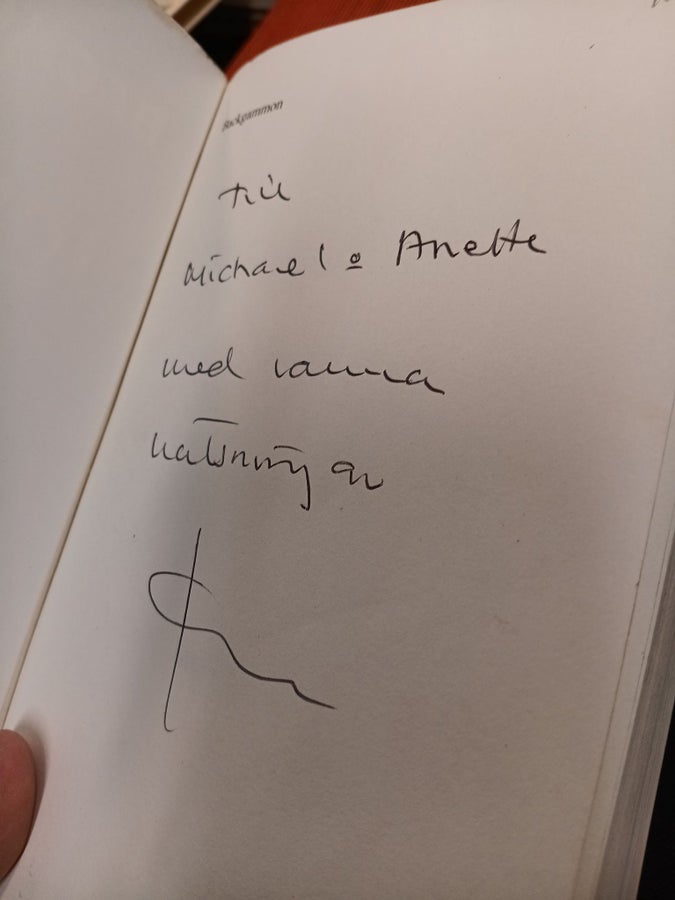 Backgammon
till
Michael o Anette
med varma
hälsning av